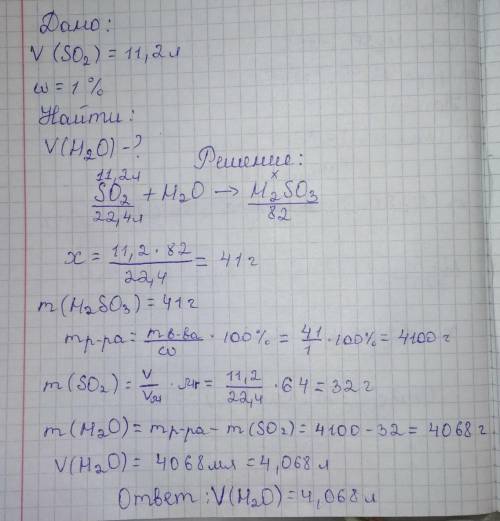 Дано:
V(SO₂) = 11,2 л
ω = 1 %
Найти:
V(H₂O) – ?
Решение:
11,2л x
SO₂ + H₂O → H₂SO₃
22,4л 82
x = 11,2 · 82 / 22,4 = 41 г
m(H₂SO₃) = 41 г
mр-ра = mв-ва / ω · 100% = 41/1 · 100% = 4100 г
m(SO₂) = V/Vм · Mr = 11,2/22,4 · 64 = 32 г
m(H₂O) = mр-ра – m(SO₂) = 4100 – 32 = 4068 г
V(H₂O) = 4068 мл = 4,068 л
Ответ: V(H₂O) = 4,068 л